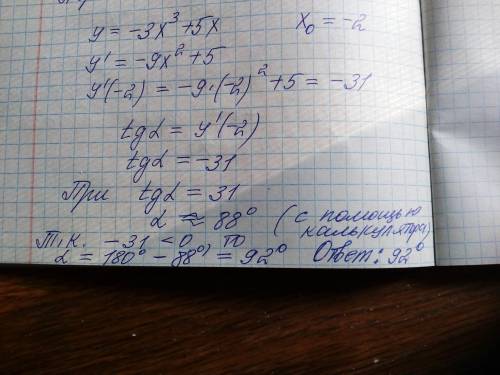 y = -3x³ + 5x    x₀ = -2
y' = -9x² + 5
y'(-2) = -9·(-2)² + 5 = -31
tgα = y'(-2)
tgα = -31
При tgα = 31
α ≈ 88° (с помощью калькулятора)
Т.к. -31 < 0 то
α = 180° - 88° = 92°    Ответ: 92°